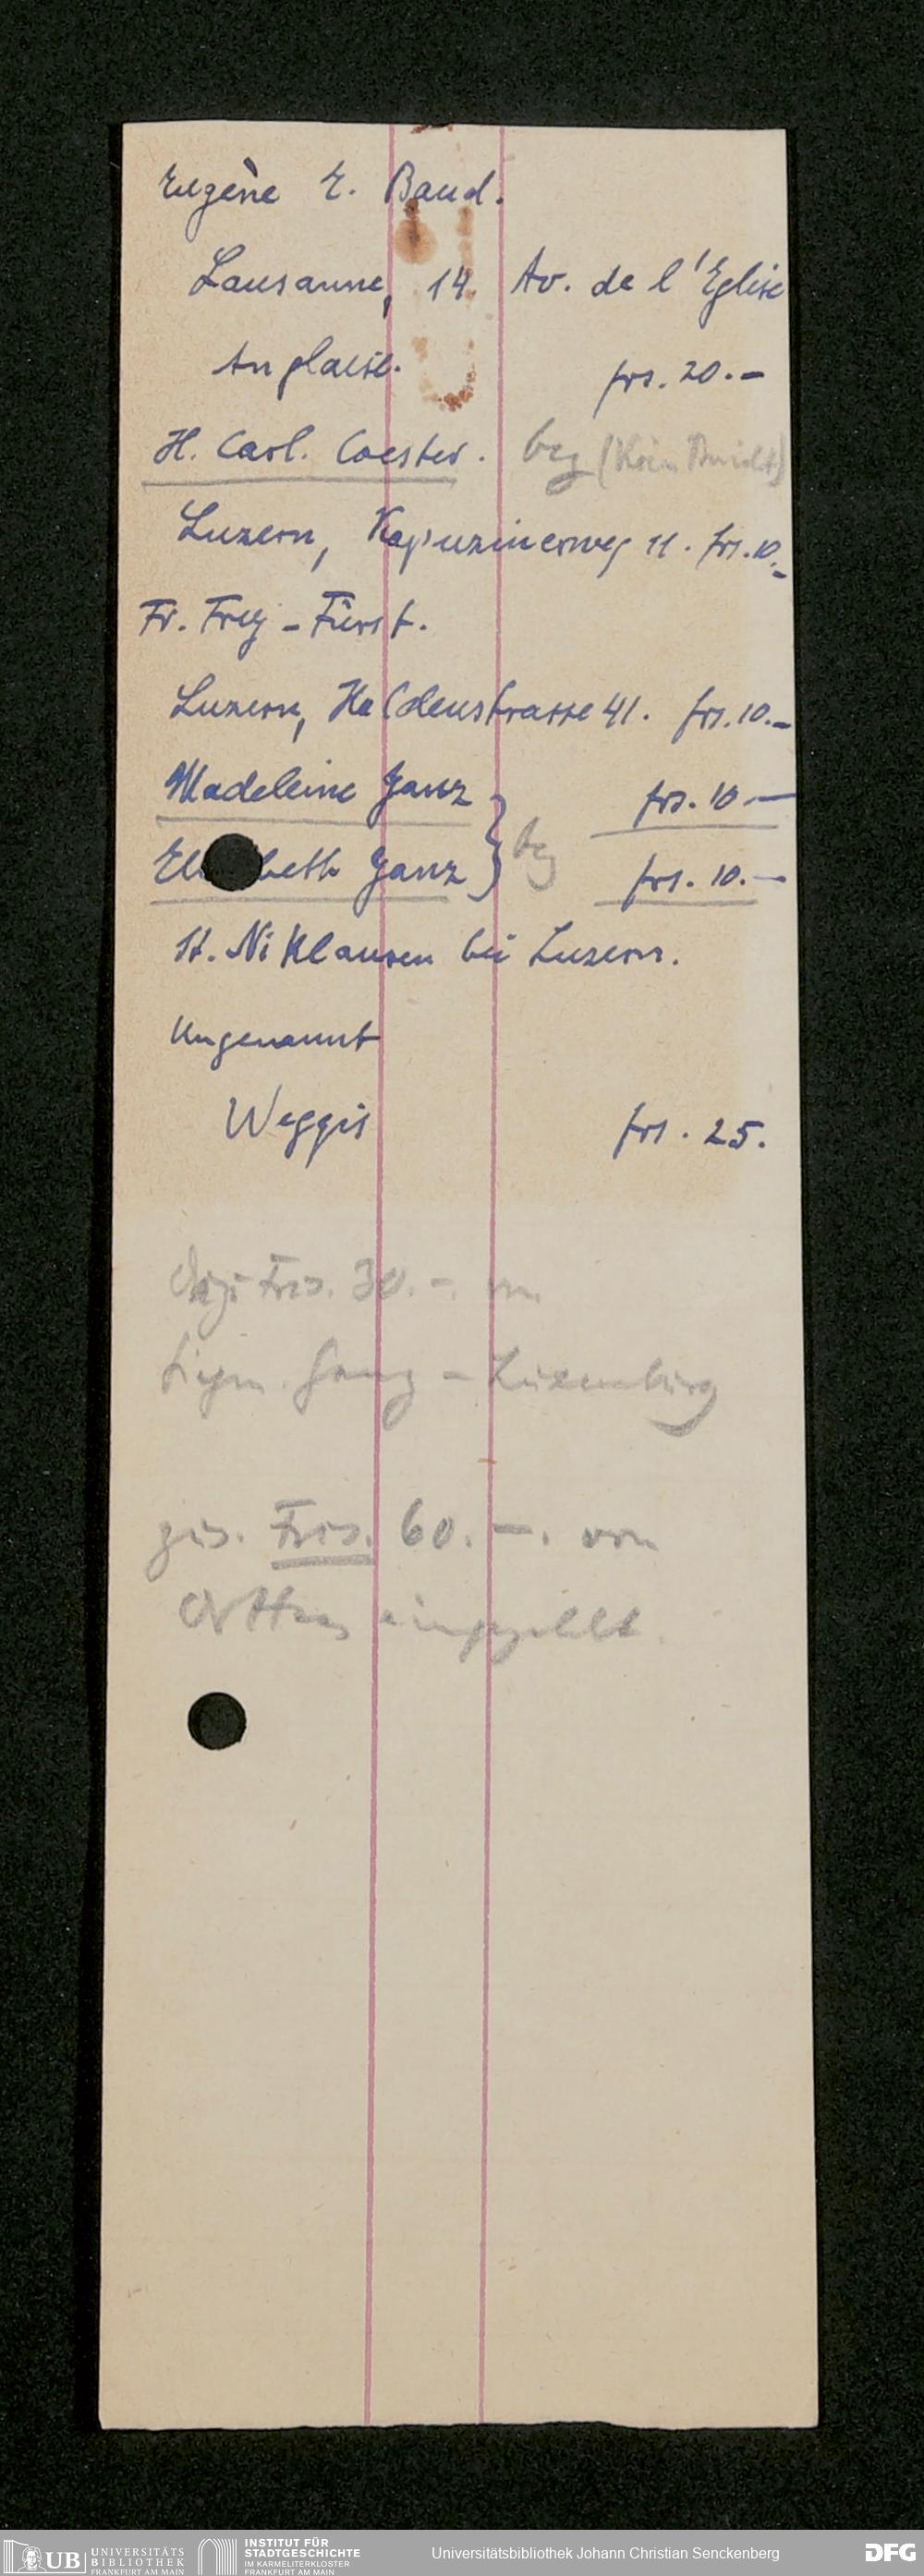 Eugène E. Baud.
Lausanne, 14 Av. de l'Eglise
Anglaise. frs. 20.-
H. Carl. Coester. bez
Luzern, Kapuzinerweg 11. frs. 10.-
Fr. Frey-Fürst.
Luzern, Haldenstrasse 41. frs. 10.-
Madeleine Ganz frs. 10.-
El beth Ganz } bez frs. 10.-
St. Niklausen bei Luzern.
Ungenannt
Weggis frs. 25.
Frcs. 30.-. von
Ganz - Luxemburg
Frcs. 60.-. von
eingezahlt.
UB UNIVERSITÄTS
BIBLIOTHEK
FRANKFURT AM MAIN
INSTITUT FÜR
STADTGESCHICHTE
IM KARMELITERKLOSTER
FRANKFURT AM MAIN
Universitätsbibliothek Johann Christian Senckenberg
DFG